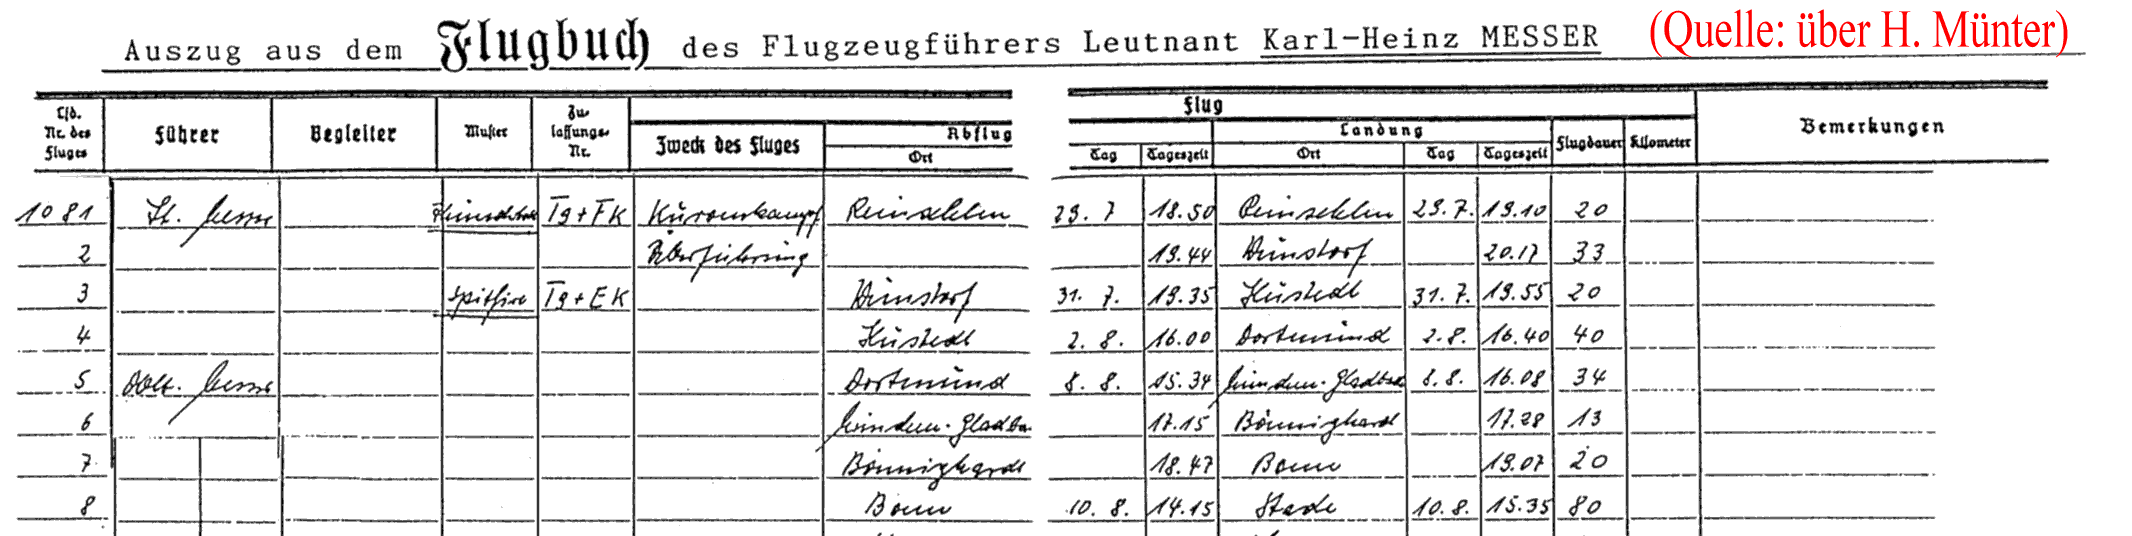 Auszug aus dem Flugbuch des Flugzeugführers Leutnant Karl-Heinz MESSER (Quelle: über H. Münter)
Lfd. Nr. des Fluges Führer Begleiter Muster Zulassungs-Nr. Zweck des Fluges Abflug Ort Tag Tageszeit Flug Landung Ort Tag Tageszeit Flugdauer Kilometer Bemerkungen
1081 Lt. Messer TG+FK Kurvenkampf Reinsehlen 29. 7 18.50 Reinsehlen 29.7. 19.10 20
2 Überführung 19.44 Wunstorf 20.17 33
3 Spitfire TG+EK Wunstorf 31. 7. 19.35 Hustedt 31.7. 19.55 20
4 Hustedt 2. 8. 16.00 Dortmund 2.8. 16.40 40
5 Messer Dortmund 8. 8. 15.34 München-Gladbach 8.8. 16.08 34
6 München-Gladba 17.15 Bönninghardt 17.28 13
7 Bönninghardt 18.47 Bonn 19.07 20
8 Bonn 10. 8. 14.15 Stade 10.8. 15.35 80